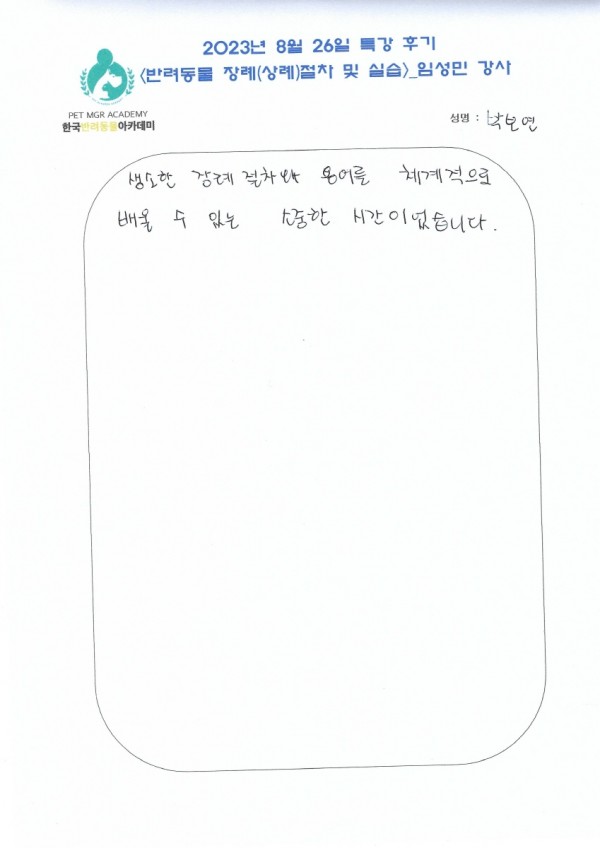 2023년 8월 26일 특강 후기
<반려동물 장례(상례)절차 및 실습>_임성민 강사
PET MGR ACADEMY
한국반려동물아카데미
성명 : 박보연
생소한 장례 절차와 용어를 체계적으로
배울 수 있는 소중한 시간이었습니다.